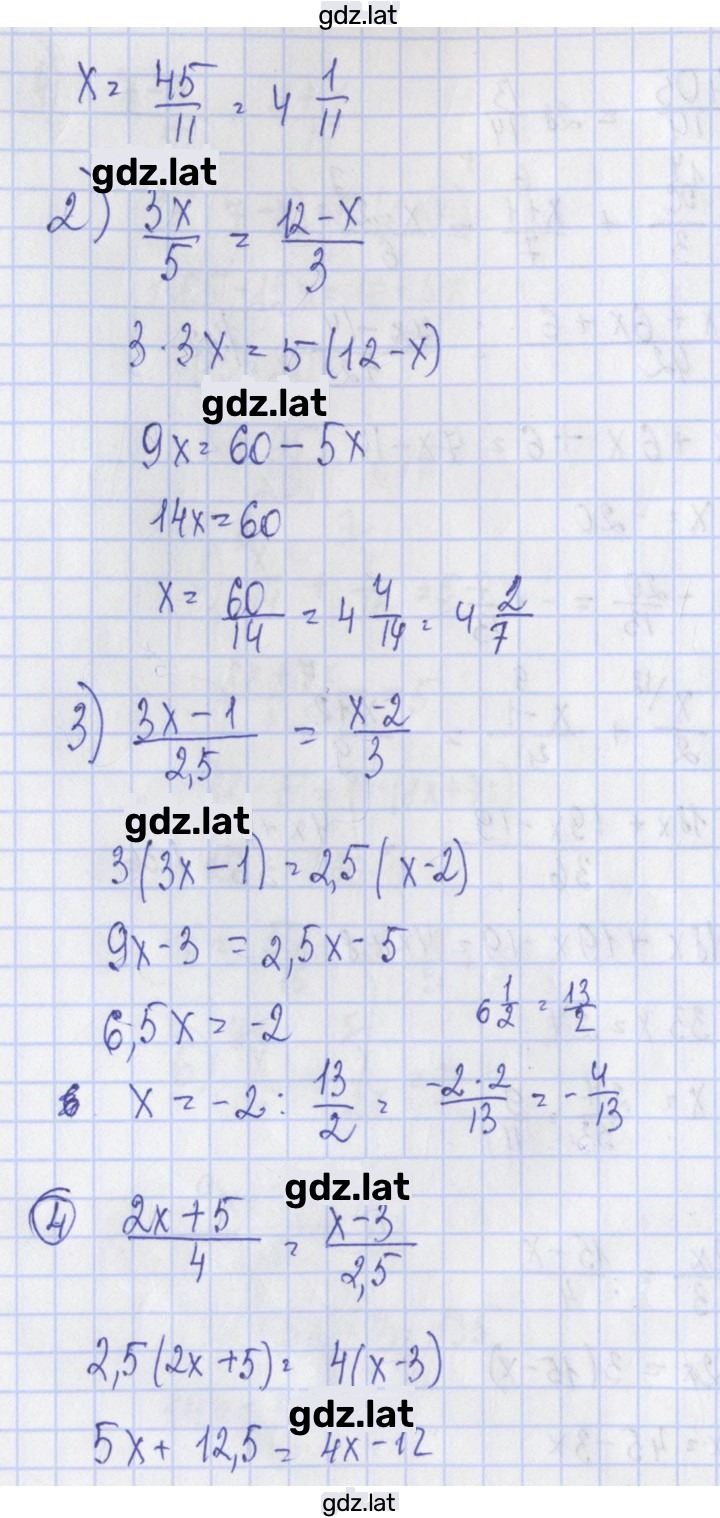 gdz.lat
x = 45/11 = 4 1/11
gdz.lat
2) 3x/5 = 12-x/3
3·3x = 5(12-x)
gdz.lat
9x = 60 - 5x
14x = 60
x = 60/14 = 4 4/14 = 4 2/7
3) 3x-1/2,5 = x-2/3
gdz.lat
3(3x-1) = 2,5(x-2)
9x-3 = 2,5x-5
6,5x = -2
6 1/2 = 13/2
x = -2 : 13/2 = -2·2/13 = -4/13
gdz.lat
4 2x+5/4 = x-3/2,5
2,5(2x+5) = 4(x-3)
gdz.lat
5x + 12,5 = 4x - 12
gdz.lat